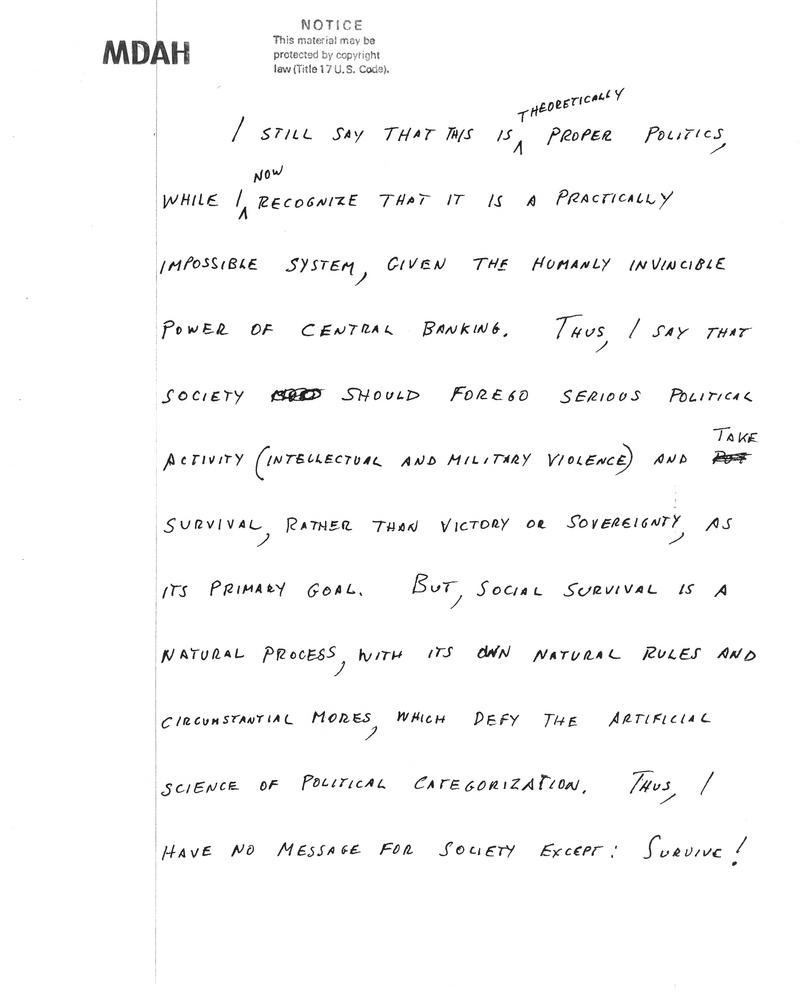 MDAH
NOTICE
This material may be
protected by copyright
law (Title 17 U.S. Code).
THEORETICALLY
I STILL SAY THAT THIS IS ^ PROPER POLITICS,
NOW
WHILE I ^ RECOGNIZE THAT IT IS A PRACTICALLY
IMPOSSIBLE SYSTEM, GIVEN THE HUMANLY INVINCIBLE
POWER OF CENTRAL BANKING. THUS, I SAY THAT
SOCIETY SHOULD FOREGO SERIOUS POLITICAL
TAKE
ACTIVITY (INTELLECTUAL AND MILITARY VIOLENCE) AND
SURVIVAL, RATHER THAN VICTORY OR SOVEREIGNTY, AS
ITS PRIMARY GOAL. BUT, SOCIAL SURVIVAL IS A
NATURAL PROCESS, WITH ITS OWN NATURAL RULES AND
CIRCUMSTANTIAL MORES, WHICH DEFY THE ARTIFICIAL
SCIENCE OF POLITICAL CATEGORIZATION. THUS, I
HAVE NO MESSAGE FOR SOCIETY EXCEPT: SURVIVE!